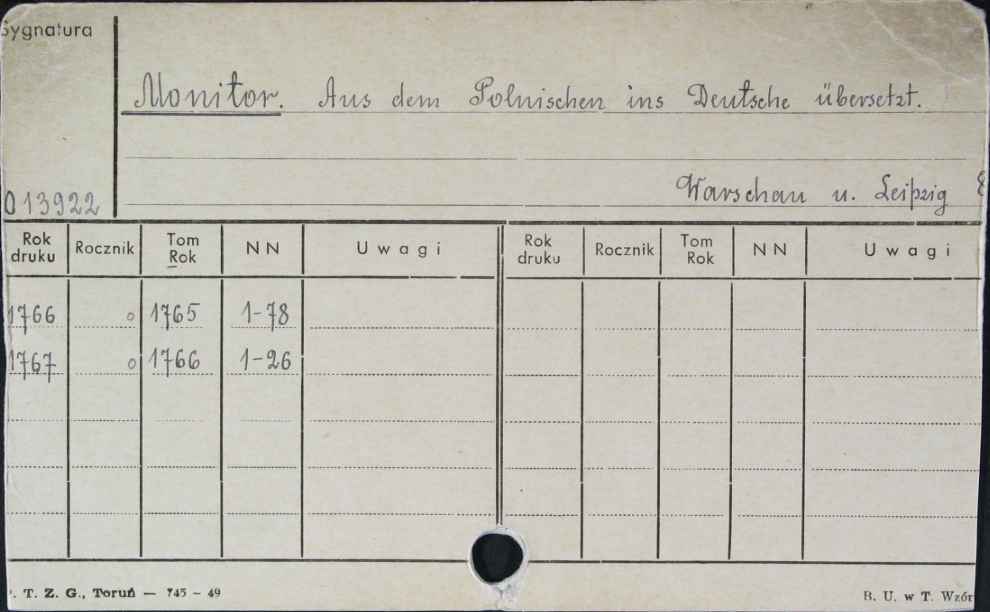 Sygnatura
Monitor. Aus dem Polnischen ins Deutsche übersetzt.
Warschau u. Leipzig
013922
Rok druku Rocznik Tom Rok NN Uwagi Rok druku Rocznik Tom Rok NN Uwagi
1766 0 1765 1-78
1767 0 1766 1-26
. T. Z. G., Toruń — 745 - 49 B. U. w T. Wzór